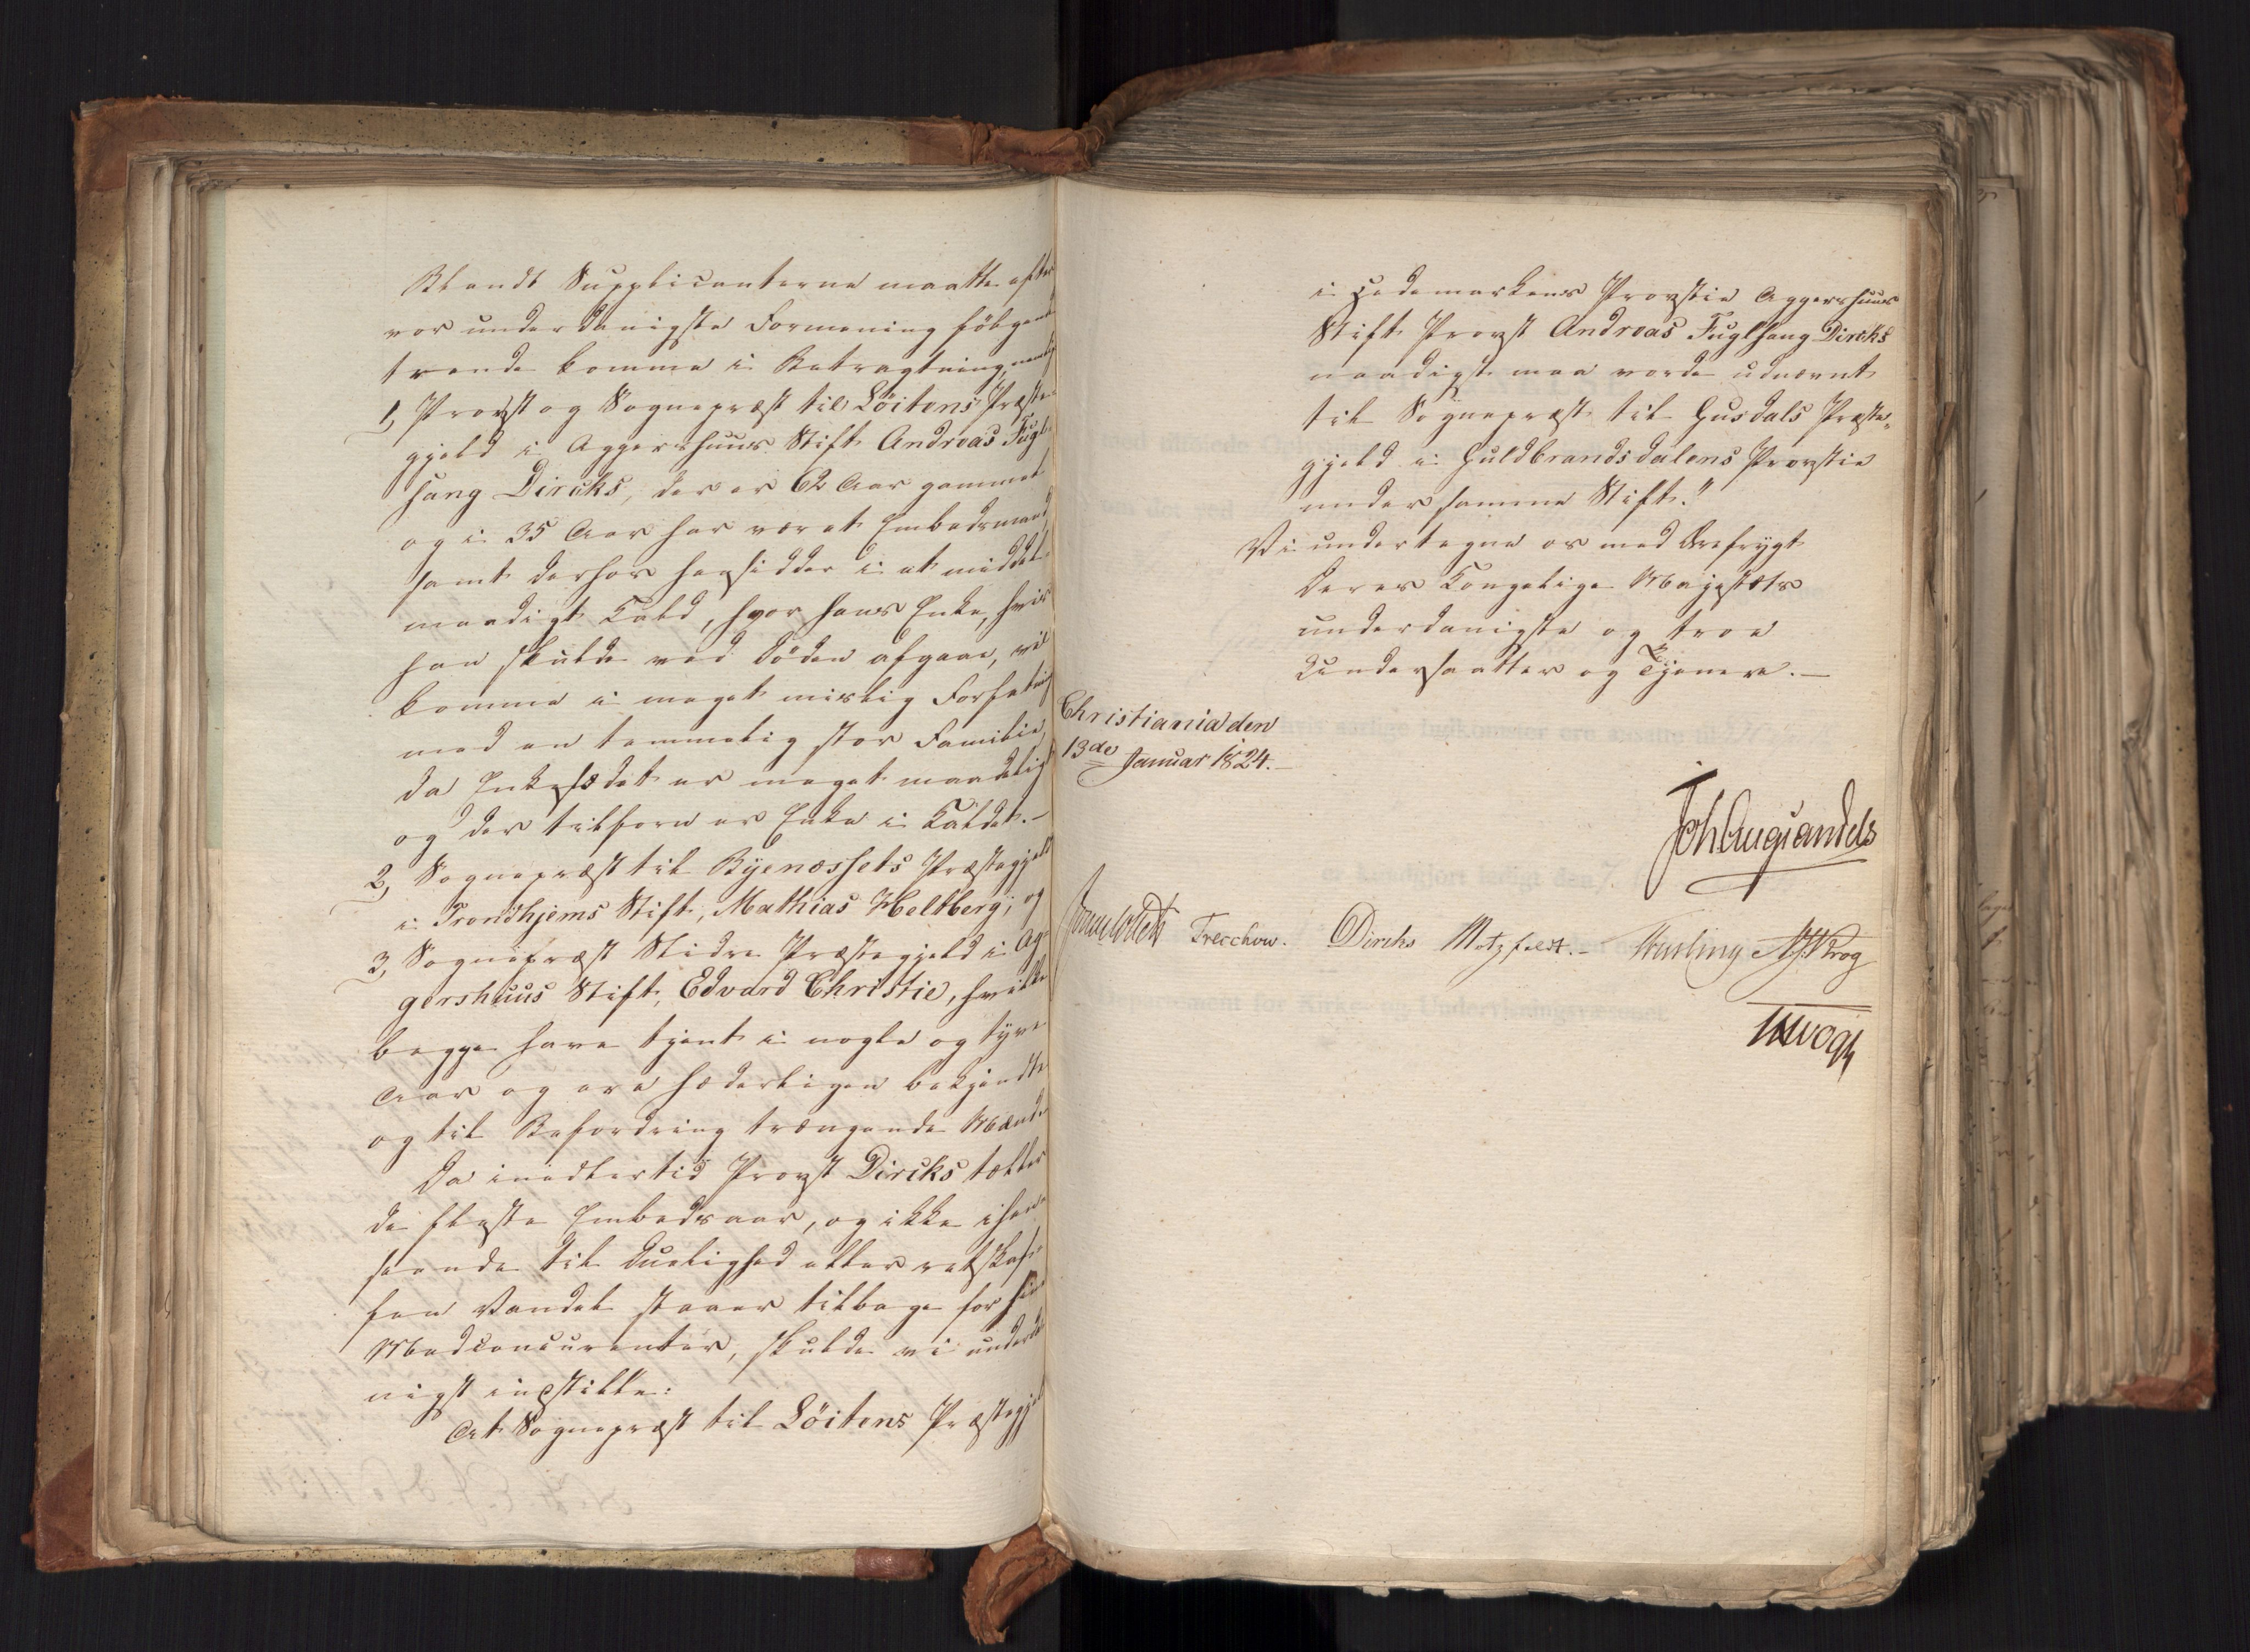 Blandt Supplicanterne maatte efter
vor underdanigste Formening følgende
trende komme i Betragtning, nemlig
1, Provst og Sognepræst til Löitens Præste-
gjeld i Aggershuus Stift Andreas Fugl-
sang Dircks, der er 62 Aar gammel
og i 35 Aar har været Embedsmand,
samt derhos hensidder i et middel-
maadigt Kald, hvor hans Enke, hvis
han skulde ved Döden afgaae, vil
komme i meget mislig Forfatning
med en temmelig stor Familie,
da Enkesædet er meget maadeligt
og der tilforn er Enke i Kaldet.—
2, Sognepræst til Byenæssets Præstegjeld
i Trondhjems Stift, Mathias Heltberg; og
3, Sognepræst Slidre Præstegjeld i Ag-
gershuus Stift, Edvard Christie, hvilke
begge have tjent i nogle og tyve
Aar og ere hæderligen bekjendte
og til Befordring trængende Mænd.
Da imidlertid Provst Dircks tæller
de fleste Embedsaar, og ikke i hen-
seende til Duelighed eller retskaf-
fen Vandel staaer tilbage for sine
Medconcurrenter, skulde vi underda-
nigst indstille:
At Sognepræst til Löitens Præstegjeld
i Hedemarkens Provstie Aggershuus
Stift Provst Andreas Fuglsang Dircks
naadigst maa vorde udnævnt
til Sognepræst til Gusdals Præste-
gjeld i Guldbrandsdalens Provstie
under samme Stift."
Vi undertegne os med Ærefrygt
Deres Kongelige Majestæts
underdanigste og troe
Undersaatter og Tjenere.—
Christiania den
13de Januar 1824.—
Joh Aug Sandels
Sommerhielm Treschow. Diriks Motzfeldt.— Fasting JJ Krog
JH Vogt